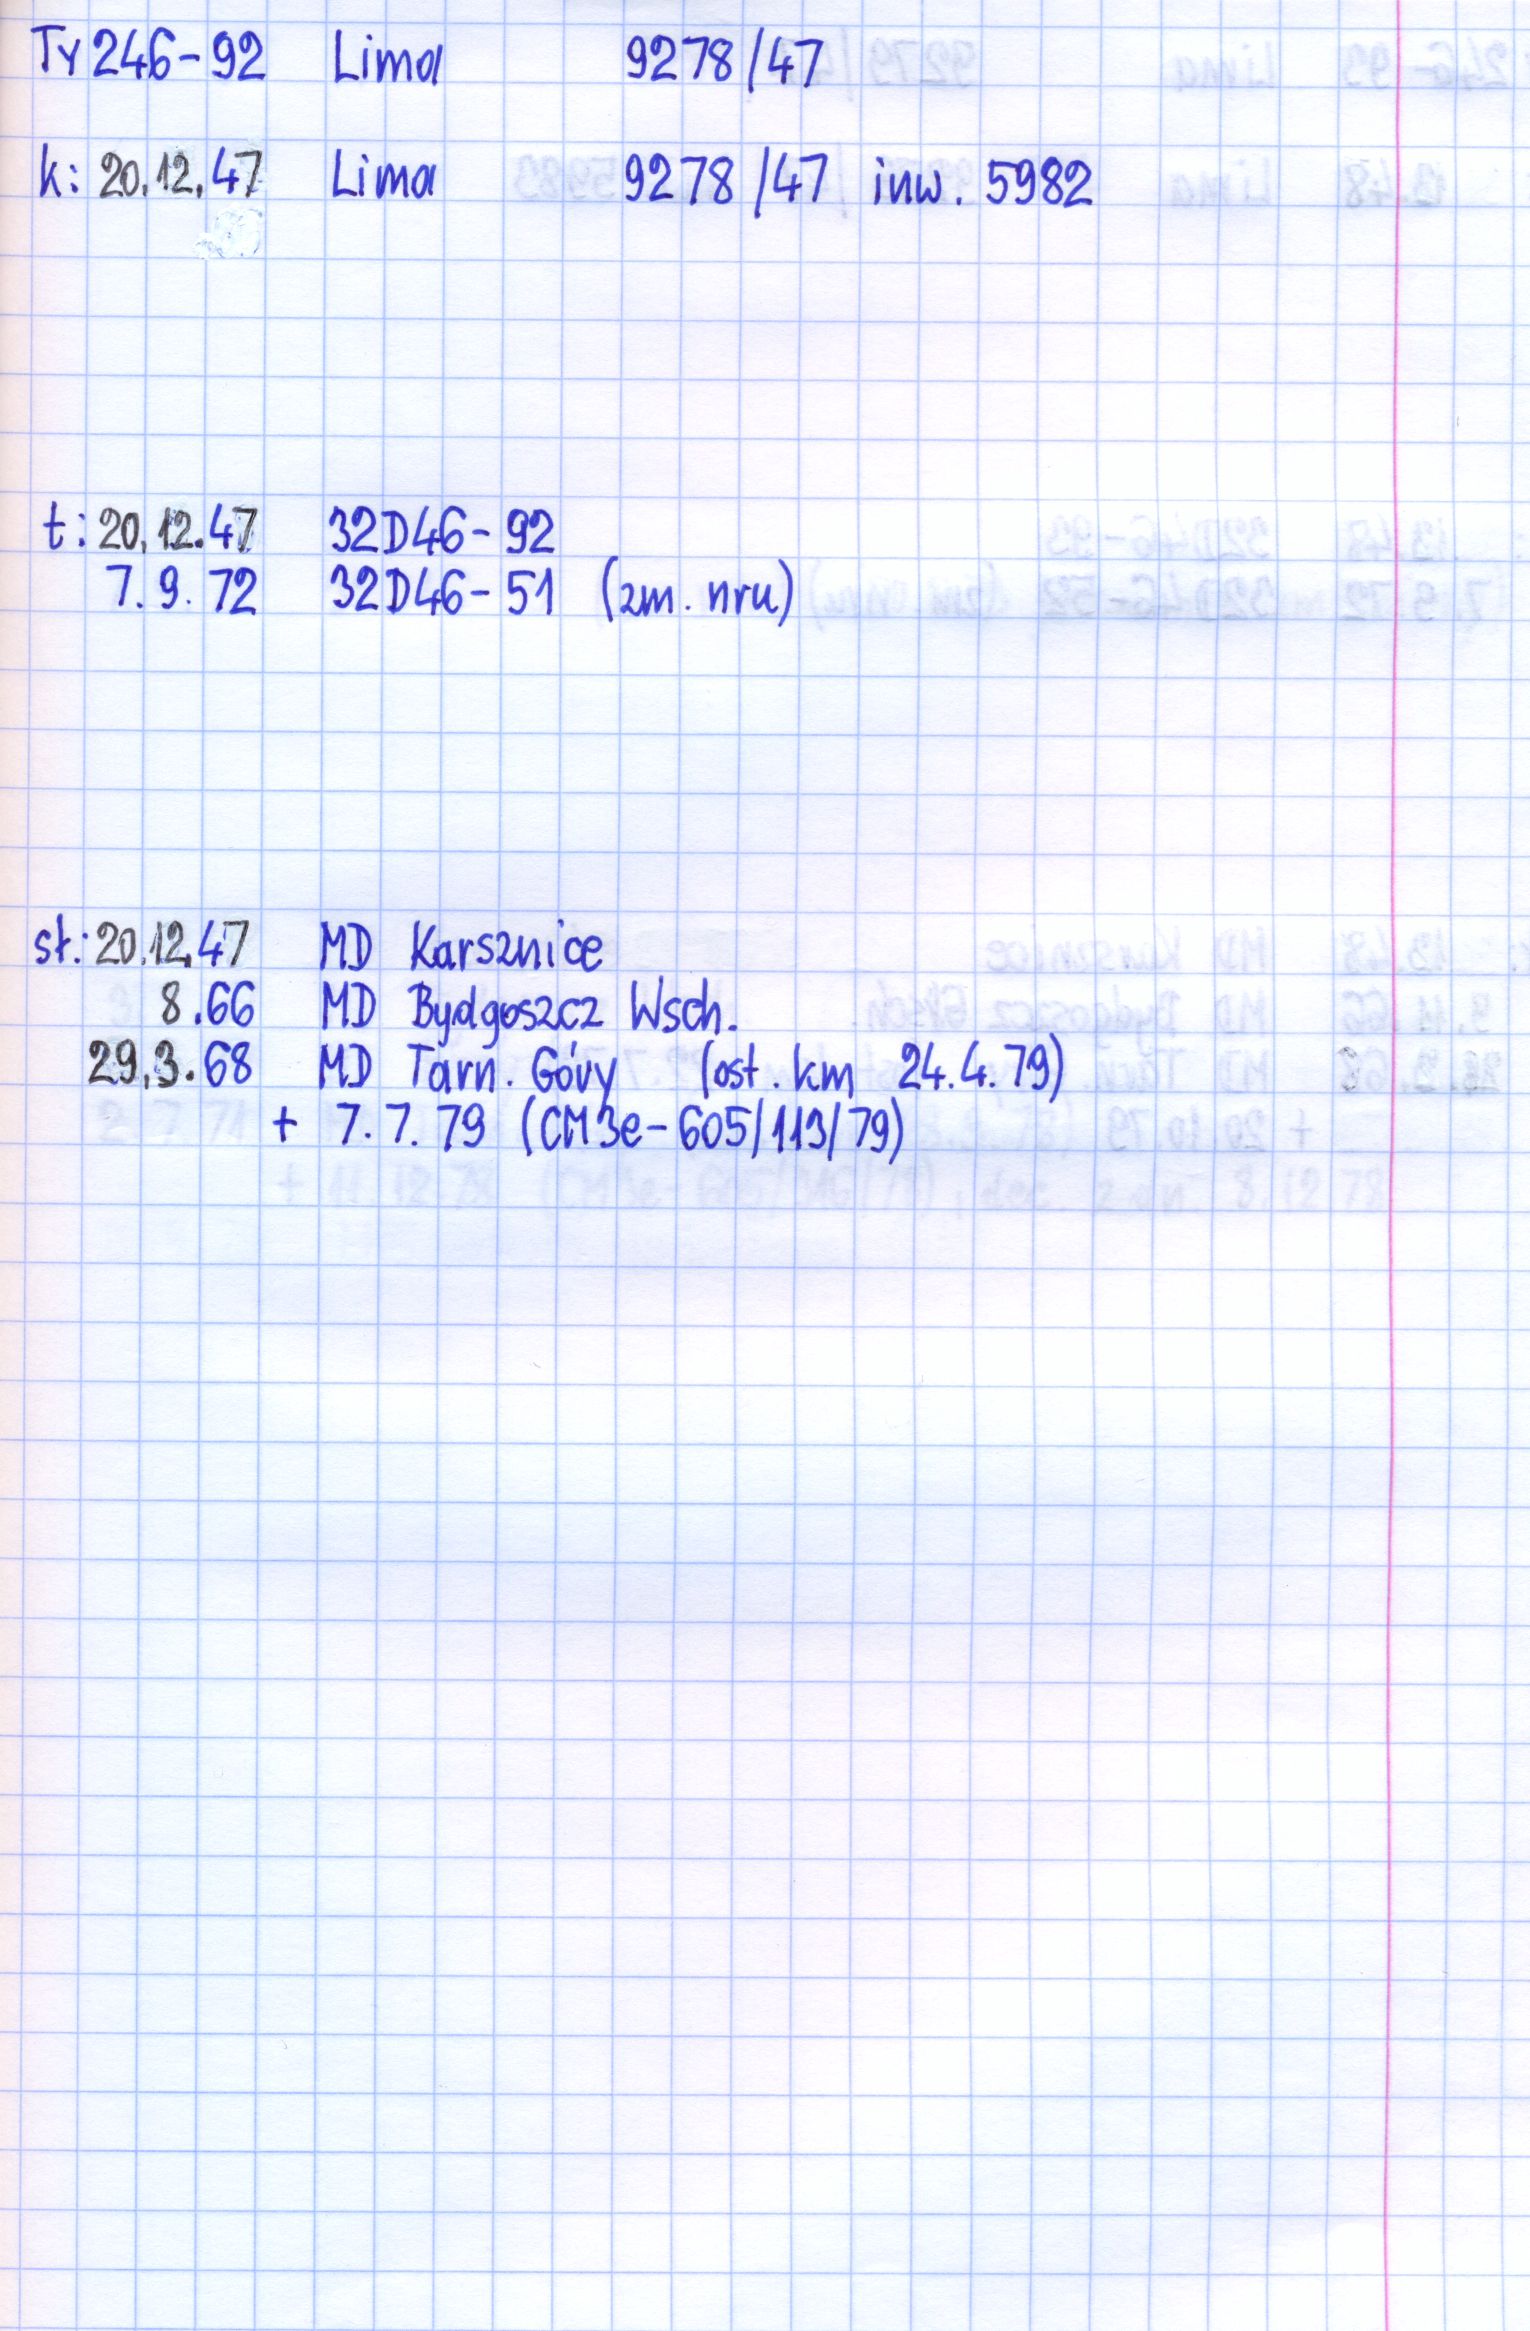 Ty246-92 Lima 9278/47
k: 20.12.47 Lima 9278/47 inw. 5982
t: 20.12.47 32D46-92
7.9.72 32D46-51 (zm. nru)
st.: 20.12.47 MD Karsznice
8.66 MD Bydgoszcz Wsch.
29.3.68 MD Tarn. Góry (ost. km 24.4.79)
+ 7.7.79 (CM3e-605/113/79)